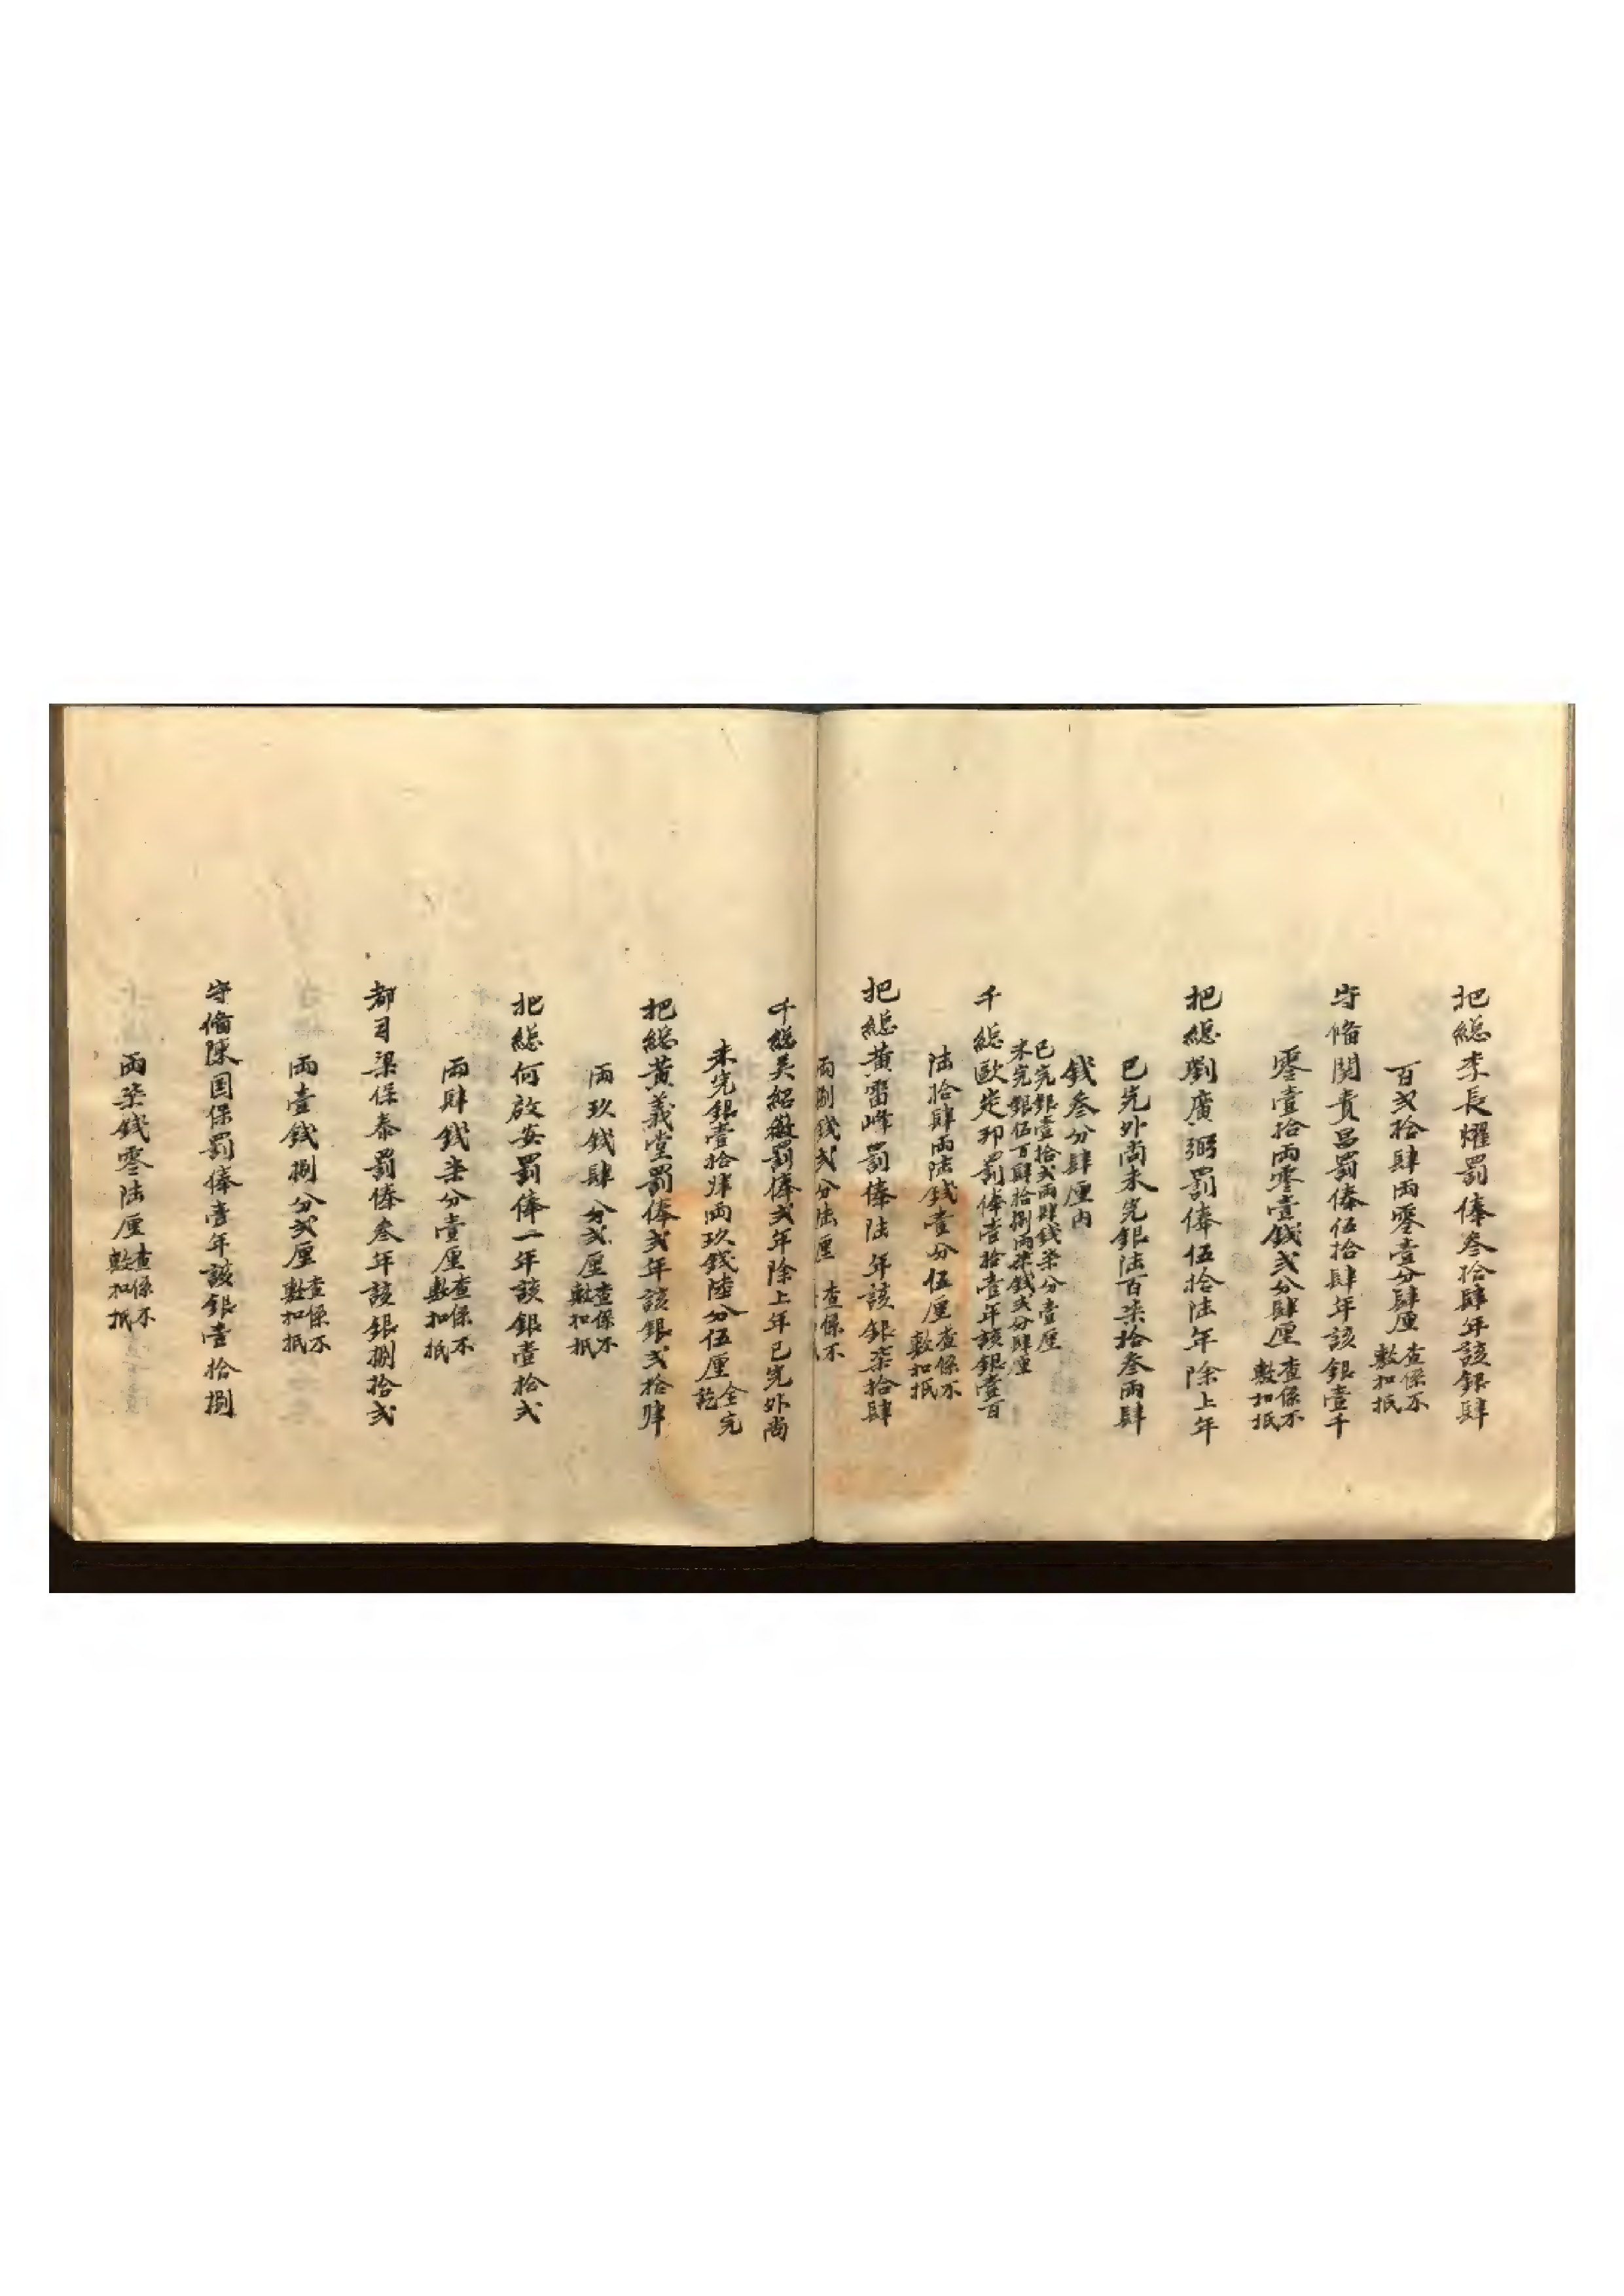 把總李長耀罰俸叁拾肆年該銀肆
百弍拾肆両零壹分肆厘查係不敷扣抵
守備関貴昌罰俸伍拾肆年該銀壹千
零壹拾両零壹錢弍分肆厘查係不敷扣抵
把總劉廣弼罰俸伍拾陆年除上年
已完外尚未完銀陆百柒拾叁両肆
錢叁分肆厘内
已完銀壹拾弍両肆錢柒分壹厘
未完銀伍百肆拾捌両柒錢弍分肆厘
千總歐定邦罰俸壹拾壹年該銀壹百
陆拾肆両陆錢壹分伍厘查係不敷扣抵
把總黄雷峰罰俸陆年該銀柒拾肆
両捌錢弍分陆厘查係不
千總吴紹徽罰俸弍年除上年已完外尚
未完銀壹拾肆両玖錢陸分伍厘全完訖
把總黄義堂罰俸弍年該銀弍拾肆
両玖錢肆分弍厘查係不敷扣抵
把總何啟安罰俸一年該銀壹拾弍
両肆錢柒分壹厘查係不敷扣抵
都司梁保泰罰俸叁年該銀捌拾弍
両壹錢捌分弍厘查係不敷扣抵
守備陳国保罰俸壹年該銀壹拾捌
両柒錢零陆厘查係不敷扣抵